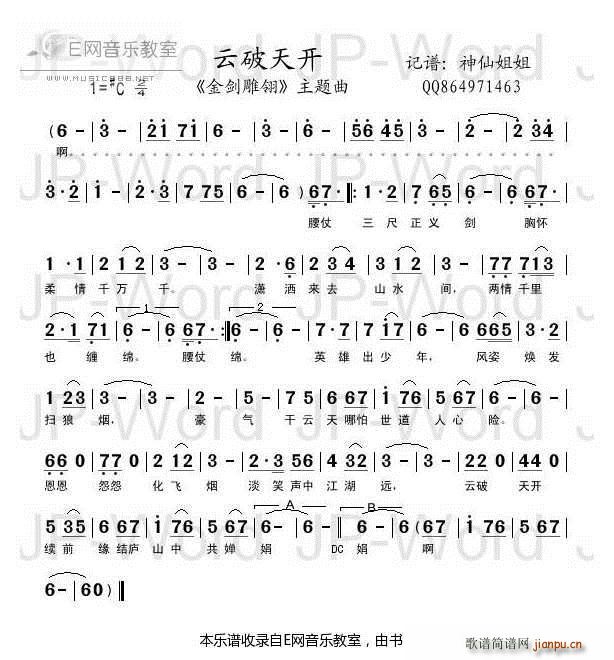 E网音乐教室
云破天开
记谱：神仙姐姐
1=#C 2/4
《金剑雕翎》主题曲
QQ864971463
( 6 - | 3 - | 21 71 | 6 - | 6 - | 56 45 | 3 - | 3 - | 2 - | 2 34 |
啊。
3·2 | 1 - | 2·3 | 7 75 | 6 - | 6 ) 67· |: 1·2 | 7 65 | 6 - | 6 67· |
腰仗 三尺正义 剑 胸怀
1·1 | 2 12 | 3 - | 3 - | 2·6 | 2 12 | 3 - | 3 - | 77 77 | 713 |
柔情千万 千。 潇洒来去 山水 间，两情千里
2·1 71 | 6 - | 6 67· :| 6 - | 6 - | 7·7 | 7 17 | 6 - | 6 665 | 3·2 |
也 缠 绵。 腰仗 绵。 英雄出少 年，风姿 焕发
1 23 | 3 - | 3 - | 2 - | 5 - | 7 75 | 6 67 | 5 76 | 6 - | 6 - |
扫狼 烟， 豪 气 干云天哪怕 世道 人心 险。
66 0 | 77 0 | 2 - | 2 176 | 5 - | 2·3 56 | 4 32 | 3 - | 3 - | 66 0 | 77 0 |
恩恩 怨怨 化飞 烟 淡 笑声中 江湖 远， 云破 天开
5 35 | 6 67 | 1 76 | 5 67 | 6 - | 6 - || 6 - | 6 (67 | 1 76 | 5 67 |
续前 缘结庐 山中 共婵 娟 DC 娟 啊
6 - | 6 0 ) ||
本乐谱收录自E网音乐教室，由书
歌谱简谱网
jianpu.cn